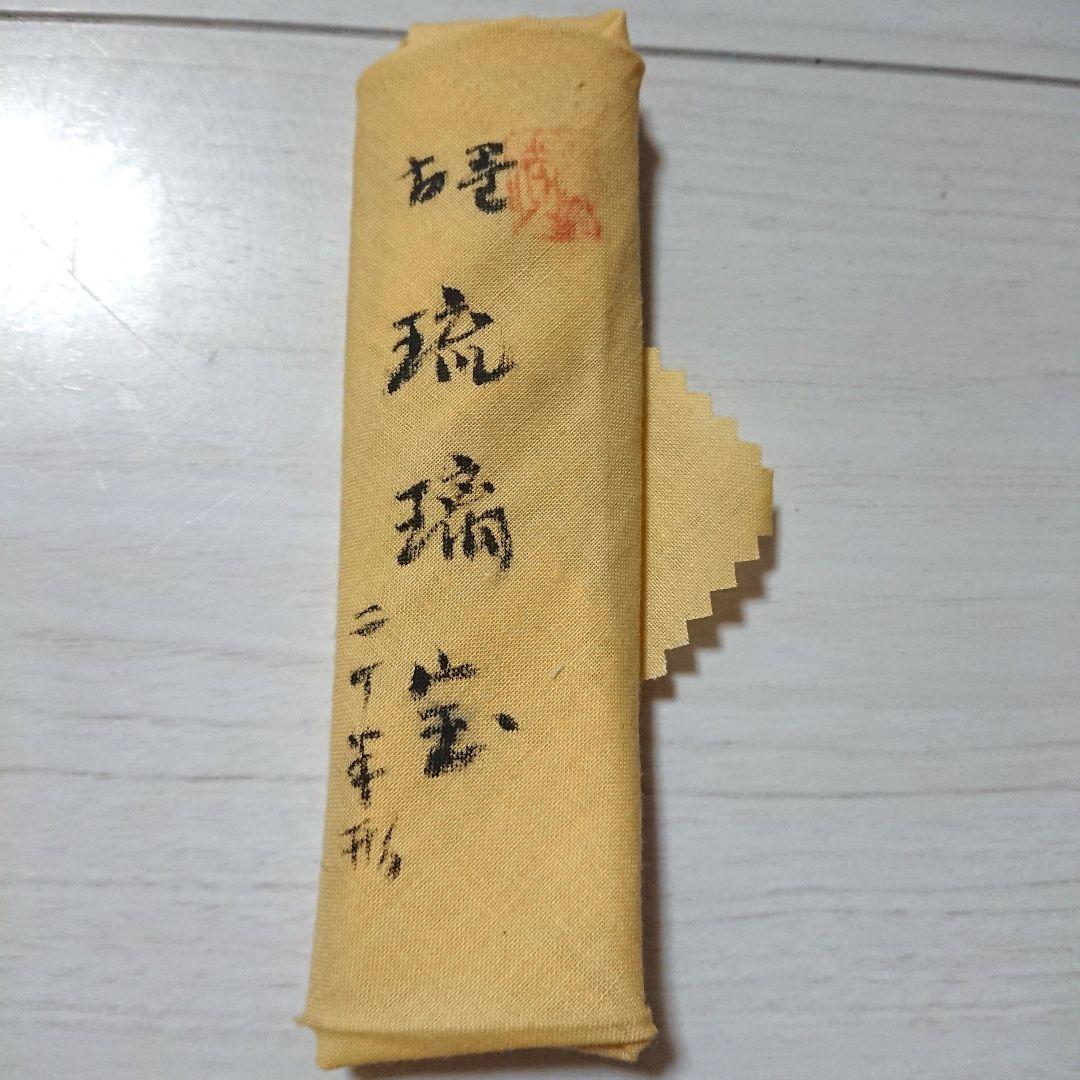 古墨
琉璃宝
二丁半形